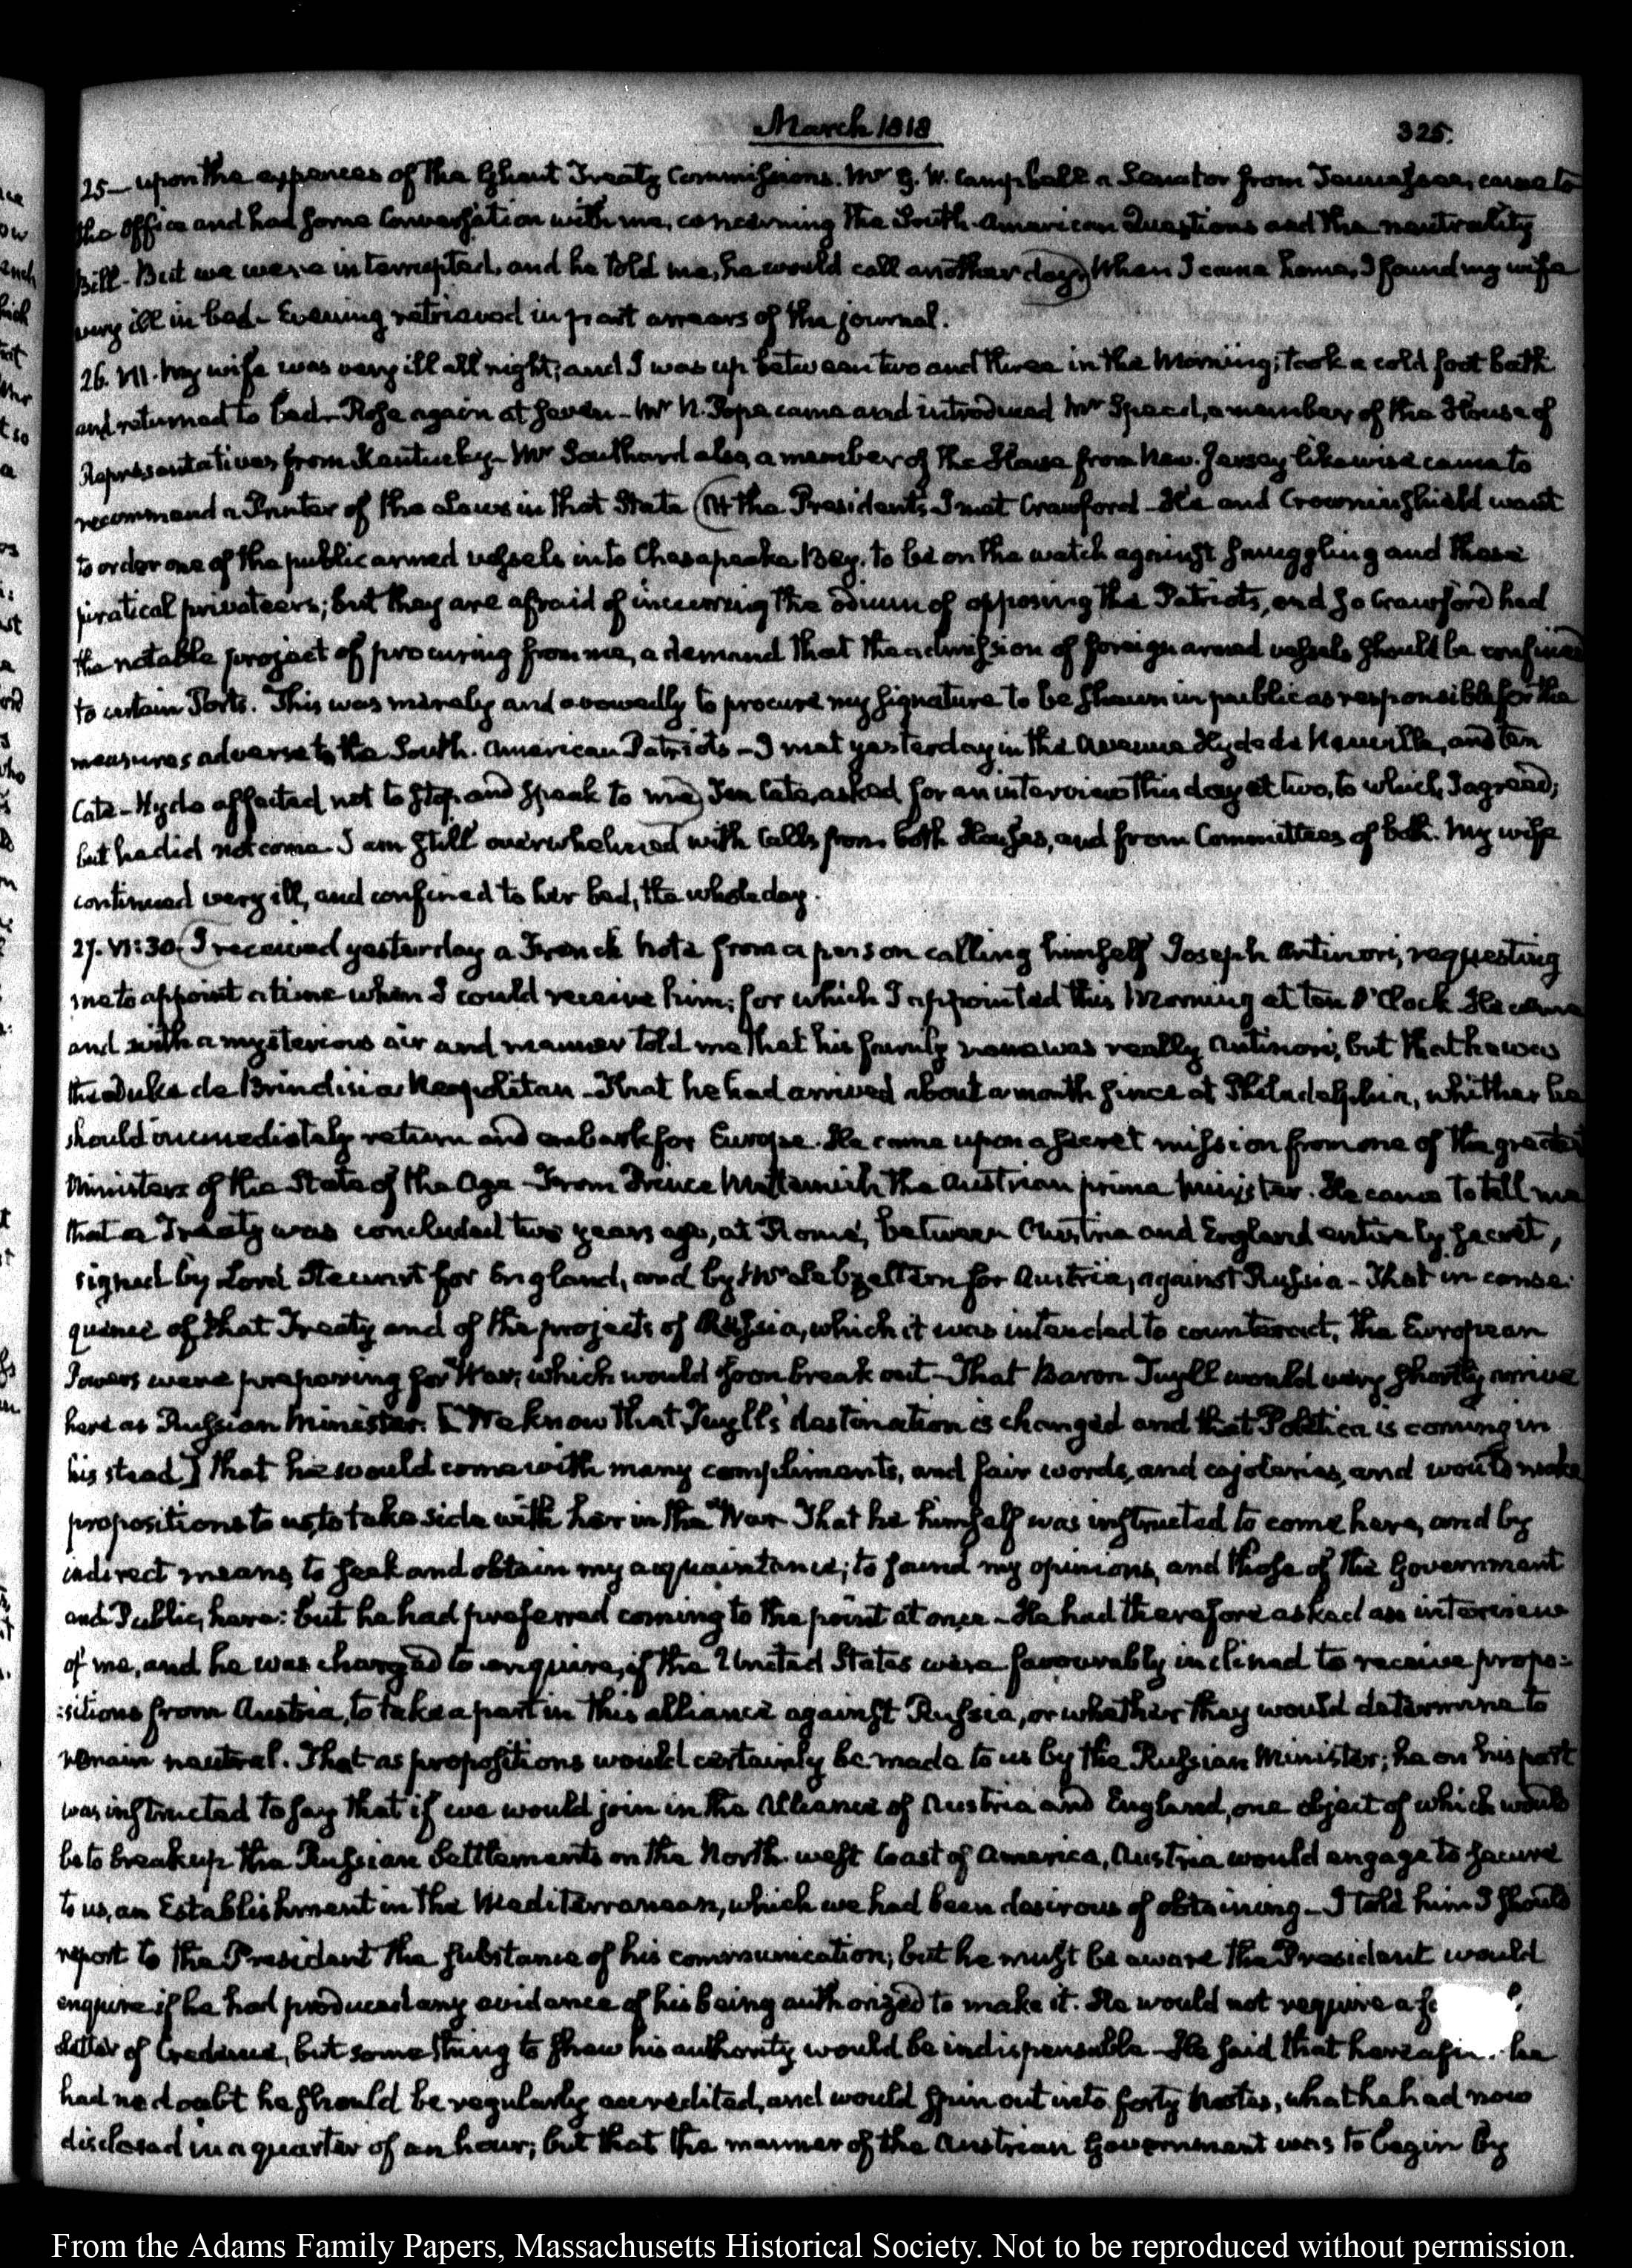 March 1818
325.
25— upon the expences of the Ghent Treaty Commissions. Mr G. W. Campbell a Senator from Tennessee, came to
the Office and had some Conversation with me, concerning the South-American Questions and the neutrality
Bill- But we were interrupted, and he told me, he would call another day. When I came home, I found my wife
very ill in bed- Evening retrieved in part arrears of the journal.
26. VII. My wife was very ill all night; and I was up between two and three in the Morning; took a cold foot bath
and returned to bed- Rose again at seven- Mr N. Pope came and introduced Mr Speed, a member of the House of
Representatives from Kentucky- Mr Southard also, a member of the House from New-Jersey likewise came to
recommend a Printer of the Laws in that State (At the President's I met Crawford- He and Crowninshield want
to order one of the public armed vessels into Chesapeake Bay, to be on the watch against smuggling and these
piratical privateers; but they are afraid of incurring the odium of opposing the Patriots, and so Crawford had
the notable project of procuring from me, a demand that the admission of foreign armed vessels should be confined
to certain Ports. This was merely and avowedly to procure my signature to be shewn in public as responsible for the
measures adverse to the South-American Patriots- I met yesterday in the Avenue Hyde de Neuville, and ten
Cate- Hyde affected not to stop and speak to me) Ten Cate, asked for an interview this day at two, to which, I agreed;
but he did not come. I am still overwhelmed with Calls from both Houses, and from Committees of both. My wife
continued very ill, and confined to her bed, the whole day.
27. VI:30. (I received yesterday a French note from a person calling himself Joseph Antinori, requesting
me to appoint a time when I could receive him; for which I appointed this Morning at ten O'Clock. He came
and with a mysterious air and manner told me that his family name was really Antinori, but that he was
the Duke de Brindisi a Neapolitan- That he had arrived about a month since at Philadelphia, whither he
should immediately return and embark for Europe. He came upon a secret mission from one of the greatest
Ministers of the State of the Age- From Prince Metternich the Austrian prime Minister. He came to tell me
that a Treaty was concluded two years ago, at Rome, between Austria and England entirely secret,
signed by Lord Stewart for England, and by Mr Lebzeltern for Austria, against Russia- That in conse-
quence of that Treaty and of the projects of Russia, which it was intended to counteract, the European
Powers were preparing for War, which would soon break out- That Baron Tuyll would very shortly arrive
here as Russian Minister. [We know that Tuyll's destination is changed and that Poletica is coming in
his stead] that he would come with many compliments, and fair words, and cajoleries, and would make
propositions to us, to take side with her in the War- That he himself was instructed to come here, and by
indirect means, to seek and obtain my acquaintance; to sound my opinions, and those of the Government
and Public, here: but he had preferred coming to the point at once- He had therefore asked an interview
of me, and he was charged to enquire, if the United States were favourably inclined to receive propo=
:sitions from Austria, to take a part in this alliance against Russia, or whether they would determine to
remain neutral. That as propositions would certainly be made to us by the Russian Minister; he on his part
was instructed to say that if we would join in the Alliance of Austria and England, one object of which would
be to break up the Russian Settlements on the North-west Coast of America, Austria would engage to secure
to us, an Establishment in the Mediterranean, which we had been desirous of obtaining- I told him I should
report to the President the substance of his communication; but he must be aware the President would
enquire if he had produced any evidence of his being authorized to make it. He would not require a
Letter of Credence, but something to shew his authority would be indispensable- He said that hereafter he
had no doubt he should be regularly accredited, and would spin out into forty Notes, what he had now
disclosed in a quarter of an hour; but that the manner of the Austrian Government was to begin by
From the Adams Family Papers, Massachusetts Historical Society. Not to be reproduced without permission.